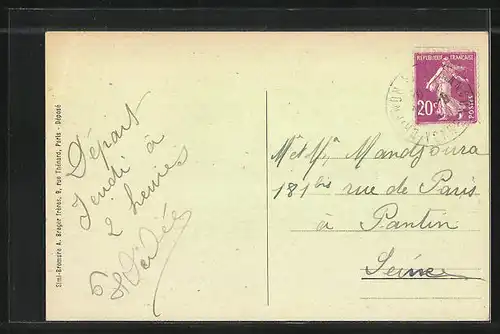 Simi-Bromure A. Breger frères, 9, rue Thénard, Paris - Déposé
Départ
Jeudi à
2 heures
RÉPUBLIQUE FRANÇAISE
20c
POSTES
Mr et Mme Mandjoura
181 bis rue de Paris
à Pantin
Seine